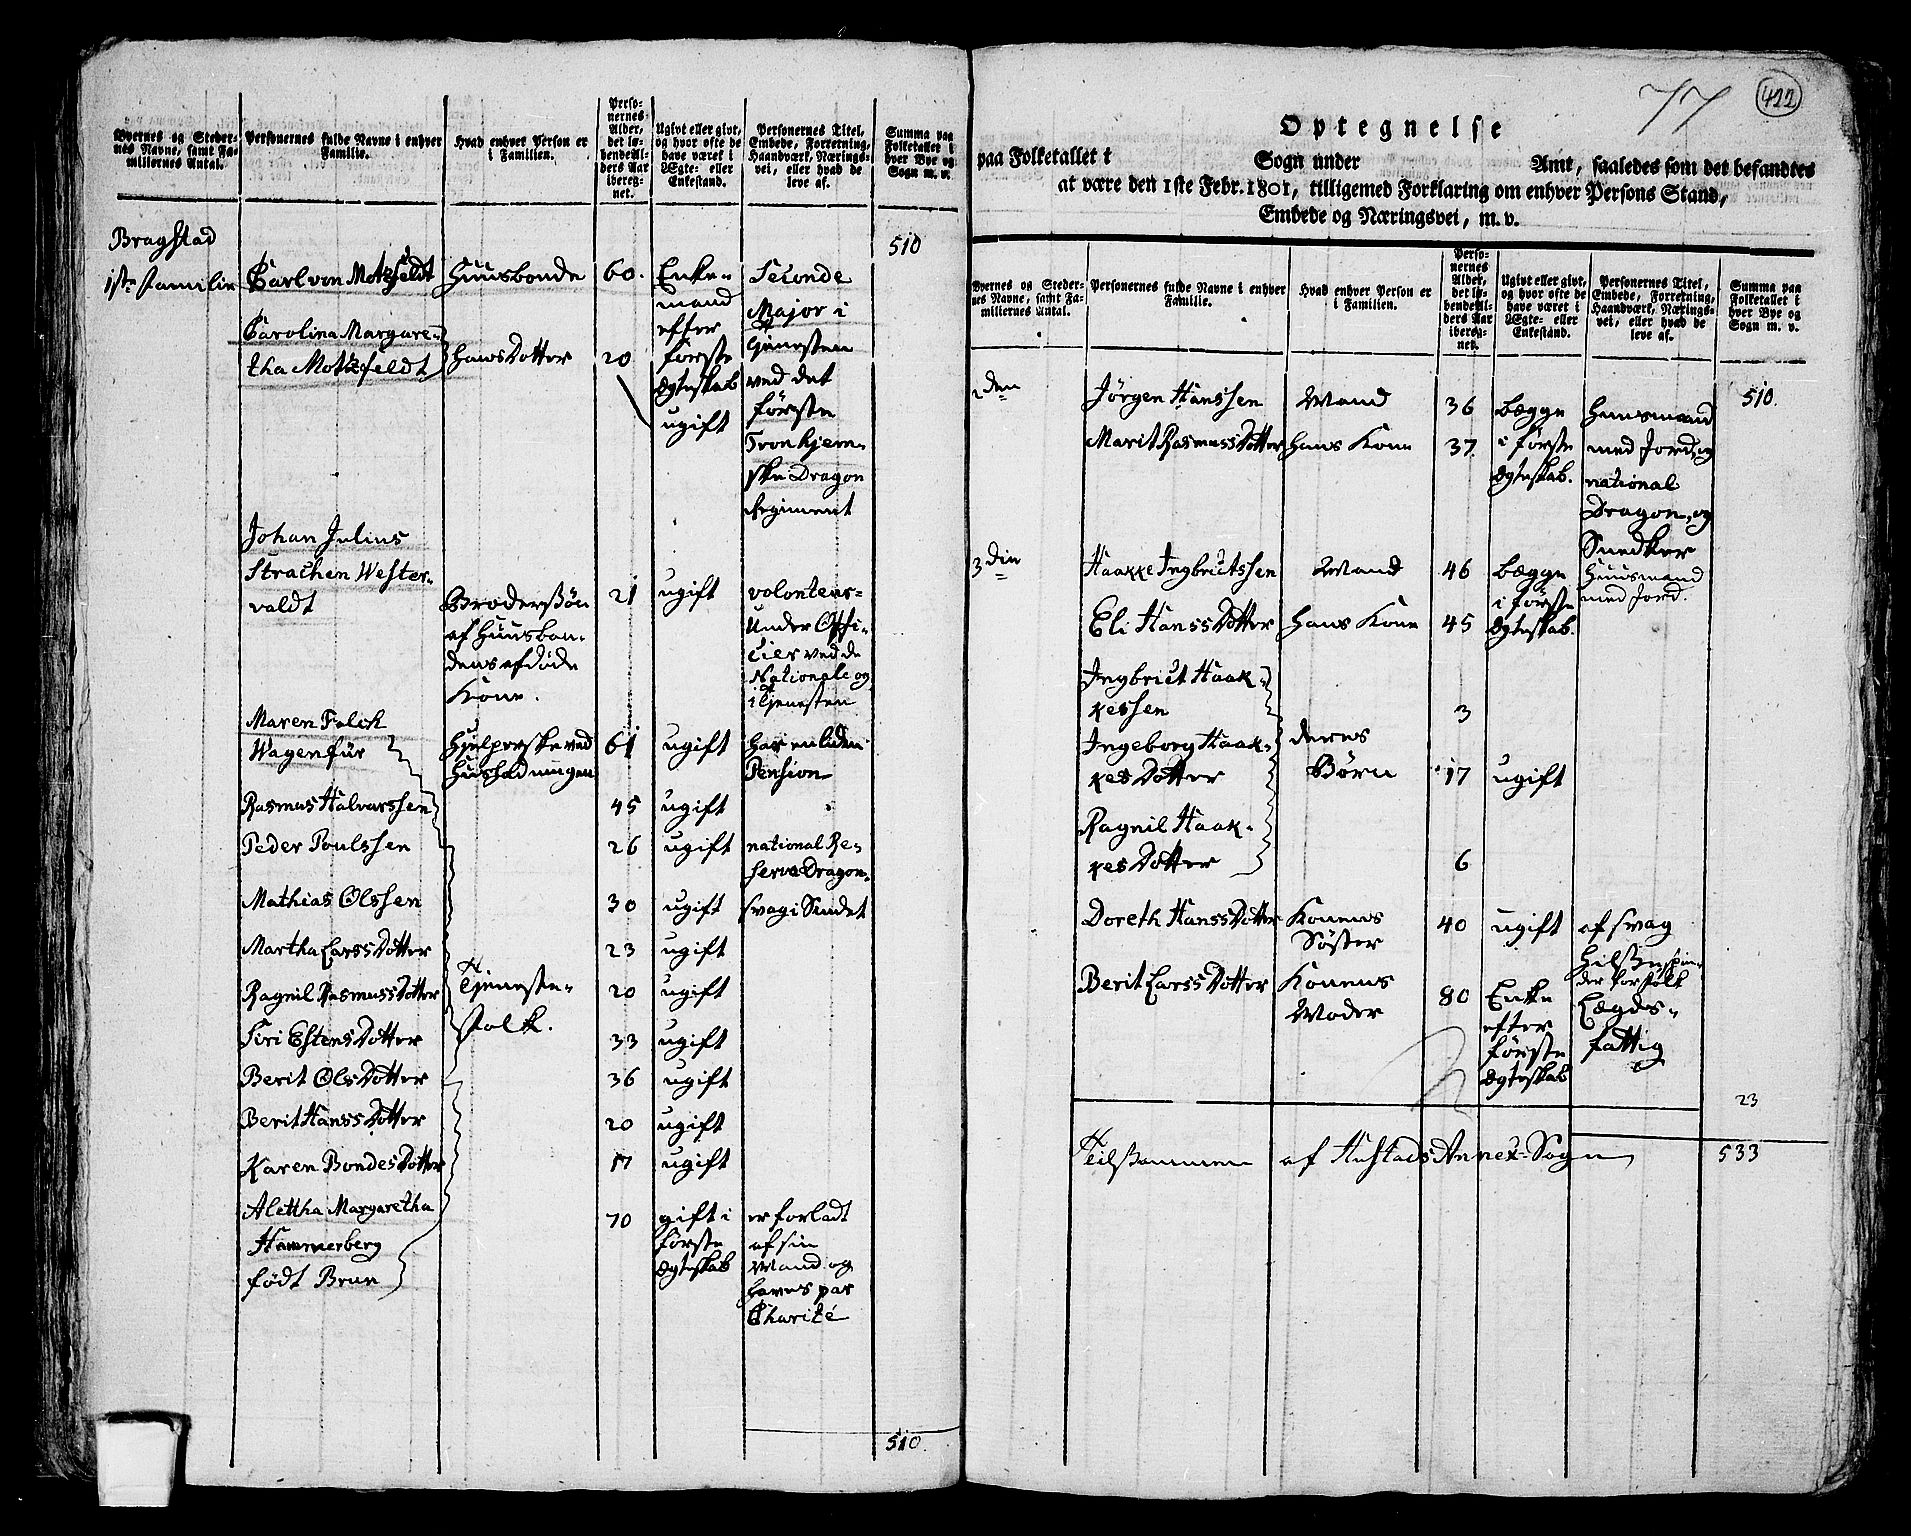 Byernes og Steder-
nes Navne, samt Fa-
miliernes Antal.
Personernes fulde Navne i enhver
Familie.
Hvad enhver Person er
i Familien.
Perso-
nernes
Alder,
det lø-
bende Al-
ders Aar
ibereg-
net.
Ugivt eller givt,
og hvor ofte de
have været i
Ægte- eller
Enkestand.
Personernes Titel,
Embede, Forretning,
Haandværk, Nærings-
vei, eller hvad de
leve af.
Summa paa
Folketallet i
hver Bye og
Sogn m. v.
Bragstad
510
1ste Familie Carl von Motzfeldt Huusbonde 60. Enke-
mand
efter
første
Ægteskab
Seconde
Major i
Tjenesten
ved det
første
Tronhjem-
ske Dragon
Regiment
Carolina Margare-
tha Motzfeldt hans Dotter 20 ugift
Johan Julius
Strachen Wester-
valdt
Broderssøn
af Huusbon-
dens afdøde
Kone.
21 ugift
volontens-
Under Offi-
cier ved de
Nationale og
i Tjenesten
Maren Falck
Wagenfür
Hjelperske ved
Huusholdningen
61 ugift har en liden
Pension
Rasmus Halvarssen 45 ugift
Peder Poulssen 26 ugift national Re-
serve Dragon.
Mathias Olssen 30 ugift svag i Sindet
Martha LarssDotter 23 ugift
Ragnil RasmussDotter 20 ugift
Tjeneste-
folk.
Siri EstensDotter 33 ugift
Berit OlsDotter 36 ugift
Berit HanssDotter 20 ugift
Karen BondesDotter 17 ugift
Alettha Margaretha
Hammerberg
født Brun
70 gift i
første
Ægteskab
er forladt
af sin
Mand og
haves par
Charité
510.
77
422
Optegnelse
paa Folketallet i Sogn under Amt, saaledes som det befandtes
at være den 1ste Febr. 1801, tilligemed Forklaring om enhver Persons Stand,
Embede og Næringsvei, m. v.
Byernes og Steder-
nes Navne, samt Fa-
miliernes Antal.
Personernes fulde Navne i enhver
Familie.
Hvad enhver Person er
i Familien.
Perso-
nernes
Alder,
det lø-
bende Al-
ders Aar
ibereg-
net.
Ugivt eller givt,
og hvor ofte de
have været i
Ægte- eller
Enkestand.
Personernes Titel,
Embede, Forretning,
Haandværk, Nærings-
vei, eller hvad de
leve af.
Summa paa
Folketallet i
hver Bye og
Sogn m. v.
510.
2den Jörgen Hanssen Mand 36 bægge
Marit RasmussDotter hans Kone 37 i første
Ægteskab.
Huusmand
med Jord, og
national
Dragon, og
Snedker
3die Haakke Ingbrictssen Mand 46 bægge
i første
Eli HanssDotter hans Kone 45 Ægteskab.
Huusmand
med Jord.
Ingbrict Haak-
kessen 3
Ingeborg Haak-
kesDotter 17 ugift
deres
Børn
Ragnil Haak-
kesDotter 6
Doreth HanssDotter Konens
Søster
40 ugift af svag
Hilsse, spin-
der for Folk
Berit LarssDotter Konens
Moder
80 Enke
efter
første
Ægteskab
Lægds-
fattig
23
Tilsammen af Hustads Annex-Sogn 533